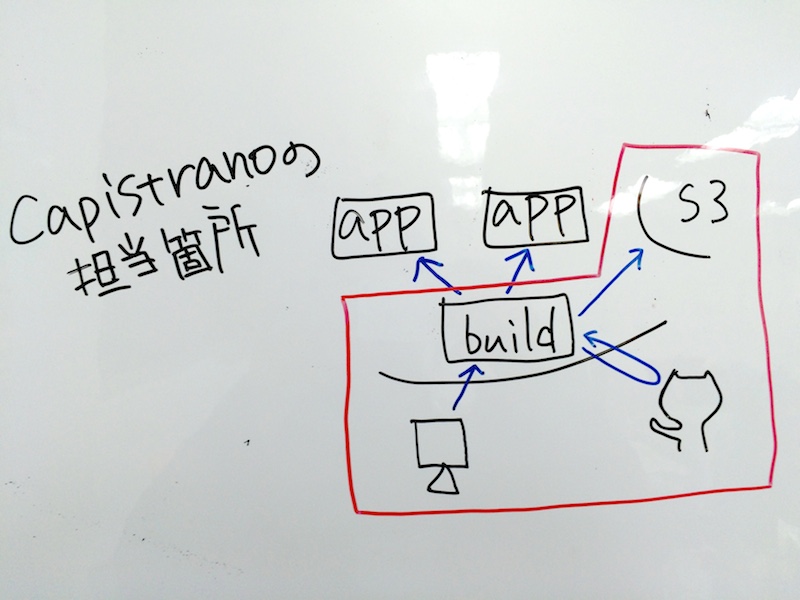 Capistranoの
担当箇所
app
app
S3
build